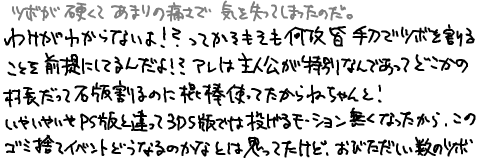 ツボが硬くてあまりの痛さで気を失ってしまったのだ。
わけがわからないよ!?ってかそもそも何故皆手刀でツボを割る
ことを前提にしてるんだよ!?アレは主人公が特別なんであってどこかの
村長だって石版割るのに棍棒使ってたからねちゃんと!
いやいやいやPS版と違って3DS版では投げるモーション無くなったから、この
ゴミ捨てイベントどうなるのかなとは思ってたけど、おびただしい数のツボ